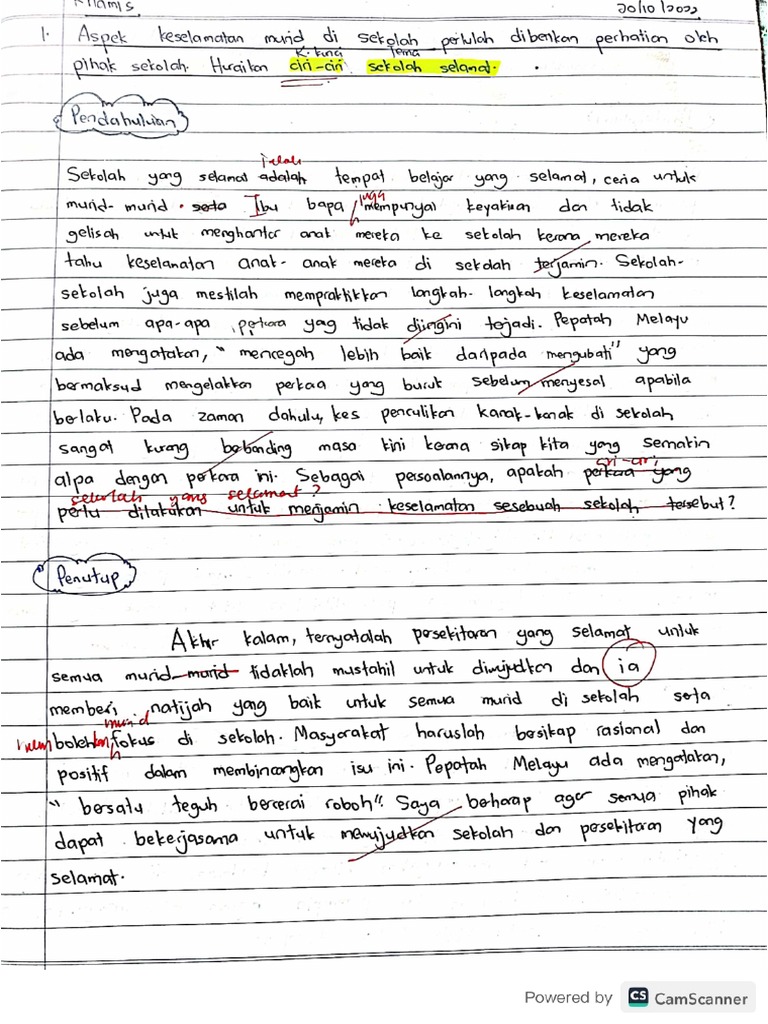 Khamis
20/10/2022
1. Aspek keselamatan murid di sekolah perlulah diberikan perhatian oleh
K. kunci Tema
pihak sekolah. Huraikan ciri-ciri sekolah selamat.
Pendahuluan
ialah
Sekolah yang selamat adalah tempat belajar yang selamat, ceria untuk
juga
murid-murid. serta Ibu bapa mempunyai keyakinan dan tidak
gelisah untuk menghantar anak mereka ke sekolah kerana mereka
tahu keselamatan anak-anak mereka di sekolah terjamin. Sekolah-
sekolah juga mestilah mempraktikkan langkah-langkah keselamatan
sebelum apa-apa perkara yang tidak diingini terjadi. Pepatah Melayu
ada mengatakan, "mencegah lebih baik daripada mengubati" yang
bermaksud mengelakkan perkara yang buruk sebelum menyesal apabila
berlaku. Pada zaman dahulu, kes penculikan kanak-kanak di sekolah
sangat kurang berbanding masa kini kerana sikap kita yang semakin
ciri-ciri
alpa dengan perkara ini. Sebagai persoalannya, apakah perkara yang
sekolah yang selamat?
perlu dilakukan untuk menjamin keselamatan sesebuah sekolah tersebut?
Penutup
Akhir kalam, ternyatalah persekitaran yang selamat untuk
semua murid-murid tidaklah mustahil untuk diwujudkan dan ia
memberi natijah yang baik untuk semua murid di sekolah serta
murid
membolehkan fokus di sekolah. Masyarakat haruslah bersikap rasional dan
positif dalam membincangkan isu ini. Pepatah Melayu ada mengatakan,
"bersatu teguh bercerai roboh". Saya berharap agar semua pihak
dapat bekerjasama untuk mewujudkan sekolah dan persekitaran yang
selamat.
Powered by CS CamScanner